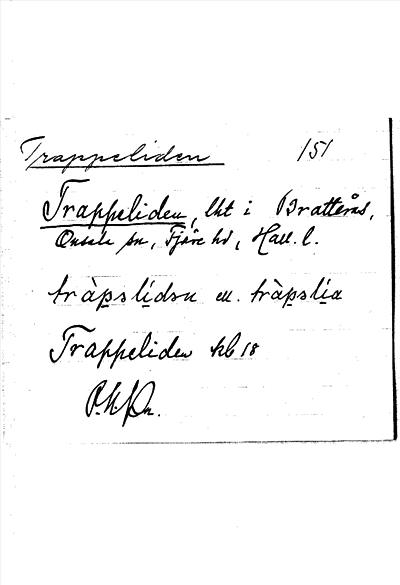 Trappeliden 151
Trappeliden, lht i Bratterås,
Onsala sn, Fjäre hd, Hall. l.
tràpslidsn el. tràpslia
Trappeliden kb 18